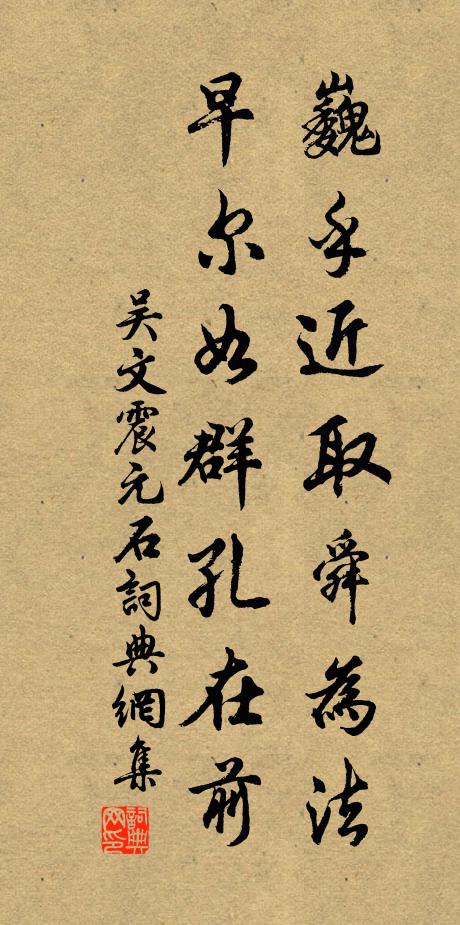 巍乎近取舜為法
早尔如群孔在前
吴文震元石詞典網集
詞典网印